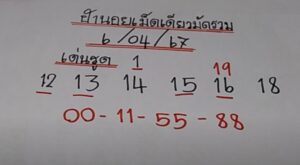 ป้านอยเม็ดเดียวมัดรวม
6/04/67
เด่นรูด 1 19
12 13 14 15 16 18
00-11-55-88